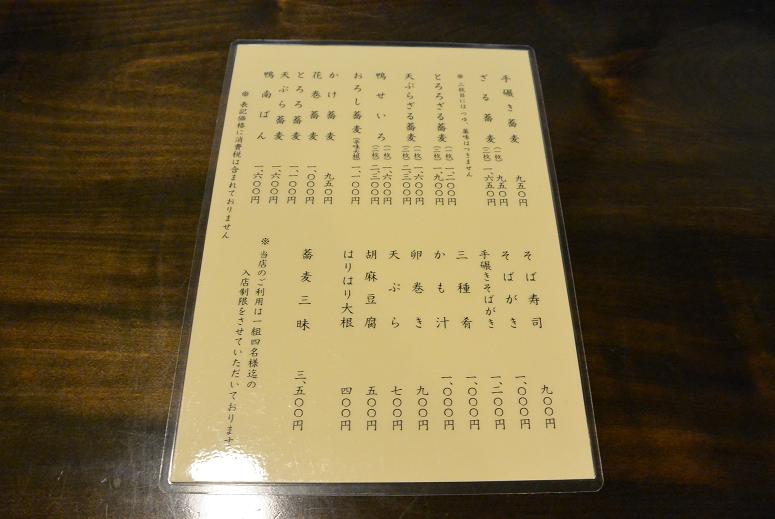 手碾き蕎麦 九五〇円
ざる蕎麦 (一枚) 九五〇円
(二枚) 一、六五〇円
※ 二枚目にはつゆ、薬味はつきません
とろろざる蕎麦 (一枚) 一、二〇〇円
(二枚) 一、九〇〇円
天ぷらざる蕎麦 (一枚) 一、六〇〇円
(二枚) 二、三〇〇円
鴨せいろ (一枚) 一、六〇〇円
(二枚) 二、三〇〇円
おろし蕎麦 (辛味大根) 一、一〇〇円
かけ蕎麦 九五〇円
花巻蕎麦 一、〇〇〇円
とろろ蕎麦 一、一〇〇円
天ぷら蕎麦 一、六〇〇円
鴨南ばん 一、六〇〇円
※ 表記価格に消費税は含まれておりません
そば寿司 九〇〇円
そばがき 一、〇〇〇円
手碾きそばがき 一、二〇〇円
三種肴 一、〇〇〇円
かも汁 一、〇〇〇円
卵巻き 九〇〇円
天ぷら 七〇〇円
胡麻豆腐 五〇〇円
はりはり大根 四〇〇円
蕎麦三昧 三、五〇〇円
※ 当店のご利用は一組四名様迄の
入店制限をさせていただいております